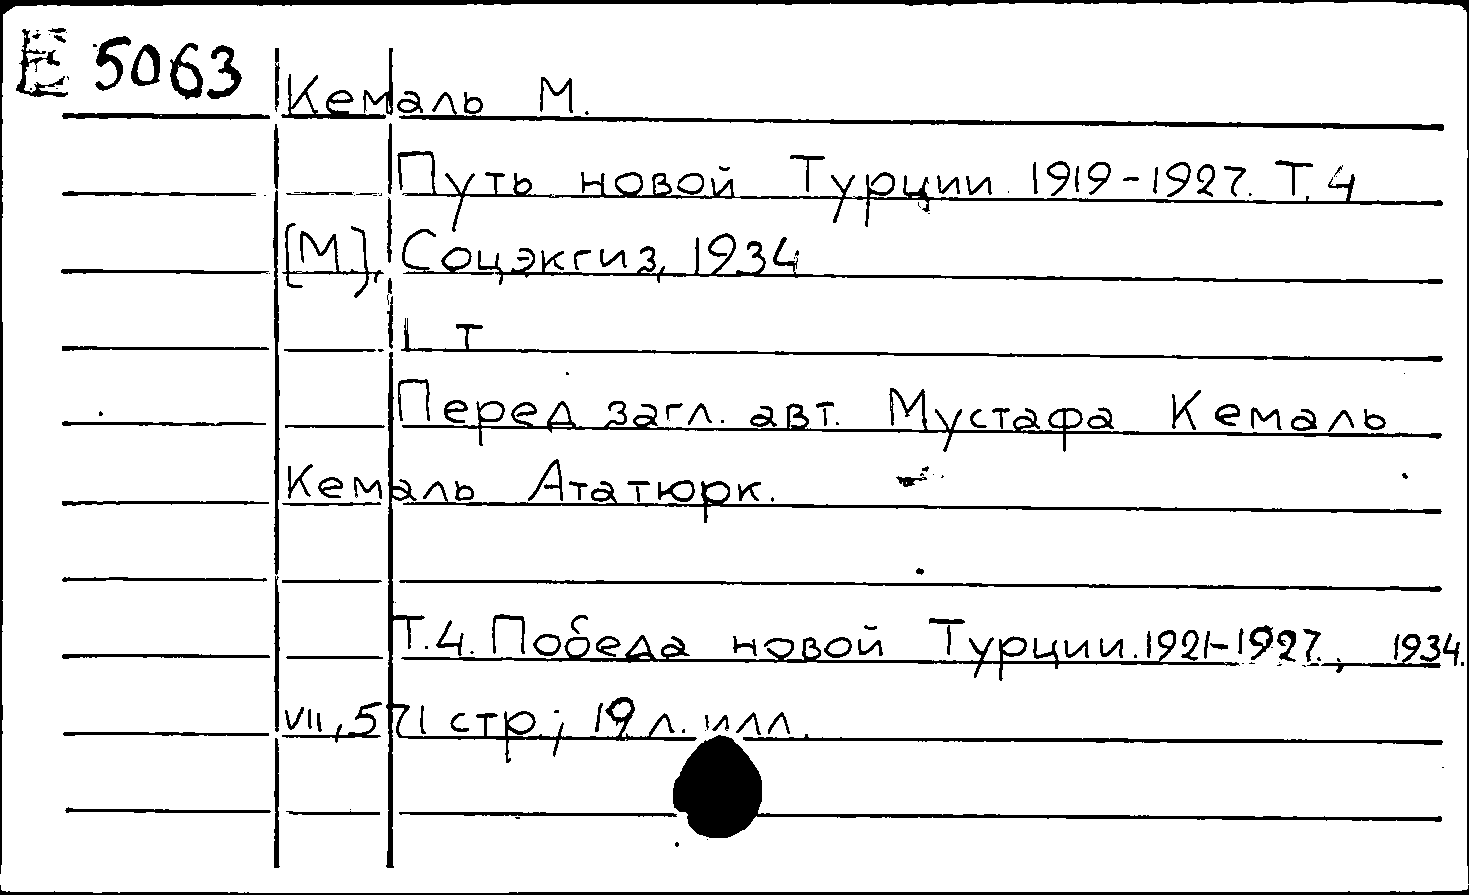 E 5063
Кемаль М.
Путь новой Турции 1919-1927. Т. 4
[М.], Соцэкгиз, 1934
1 т
Перед загл. авт. Мустафа Кемаль
Кемаль Ататюрк.
Т.4. Победа новой Турции. 1921-1927., 1934.
VII, 571 стр.; 19 л. илл.